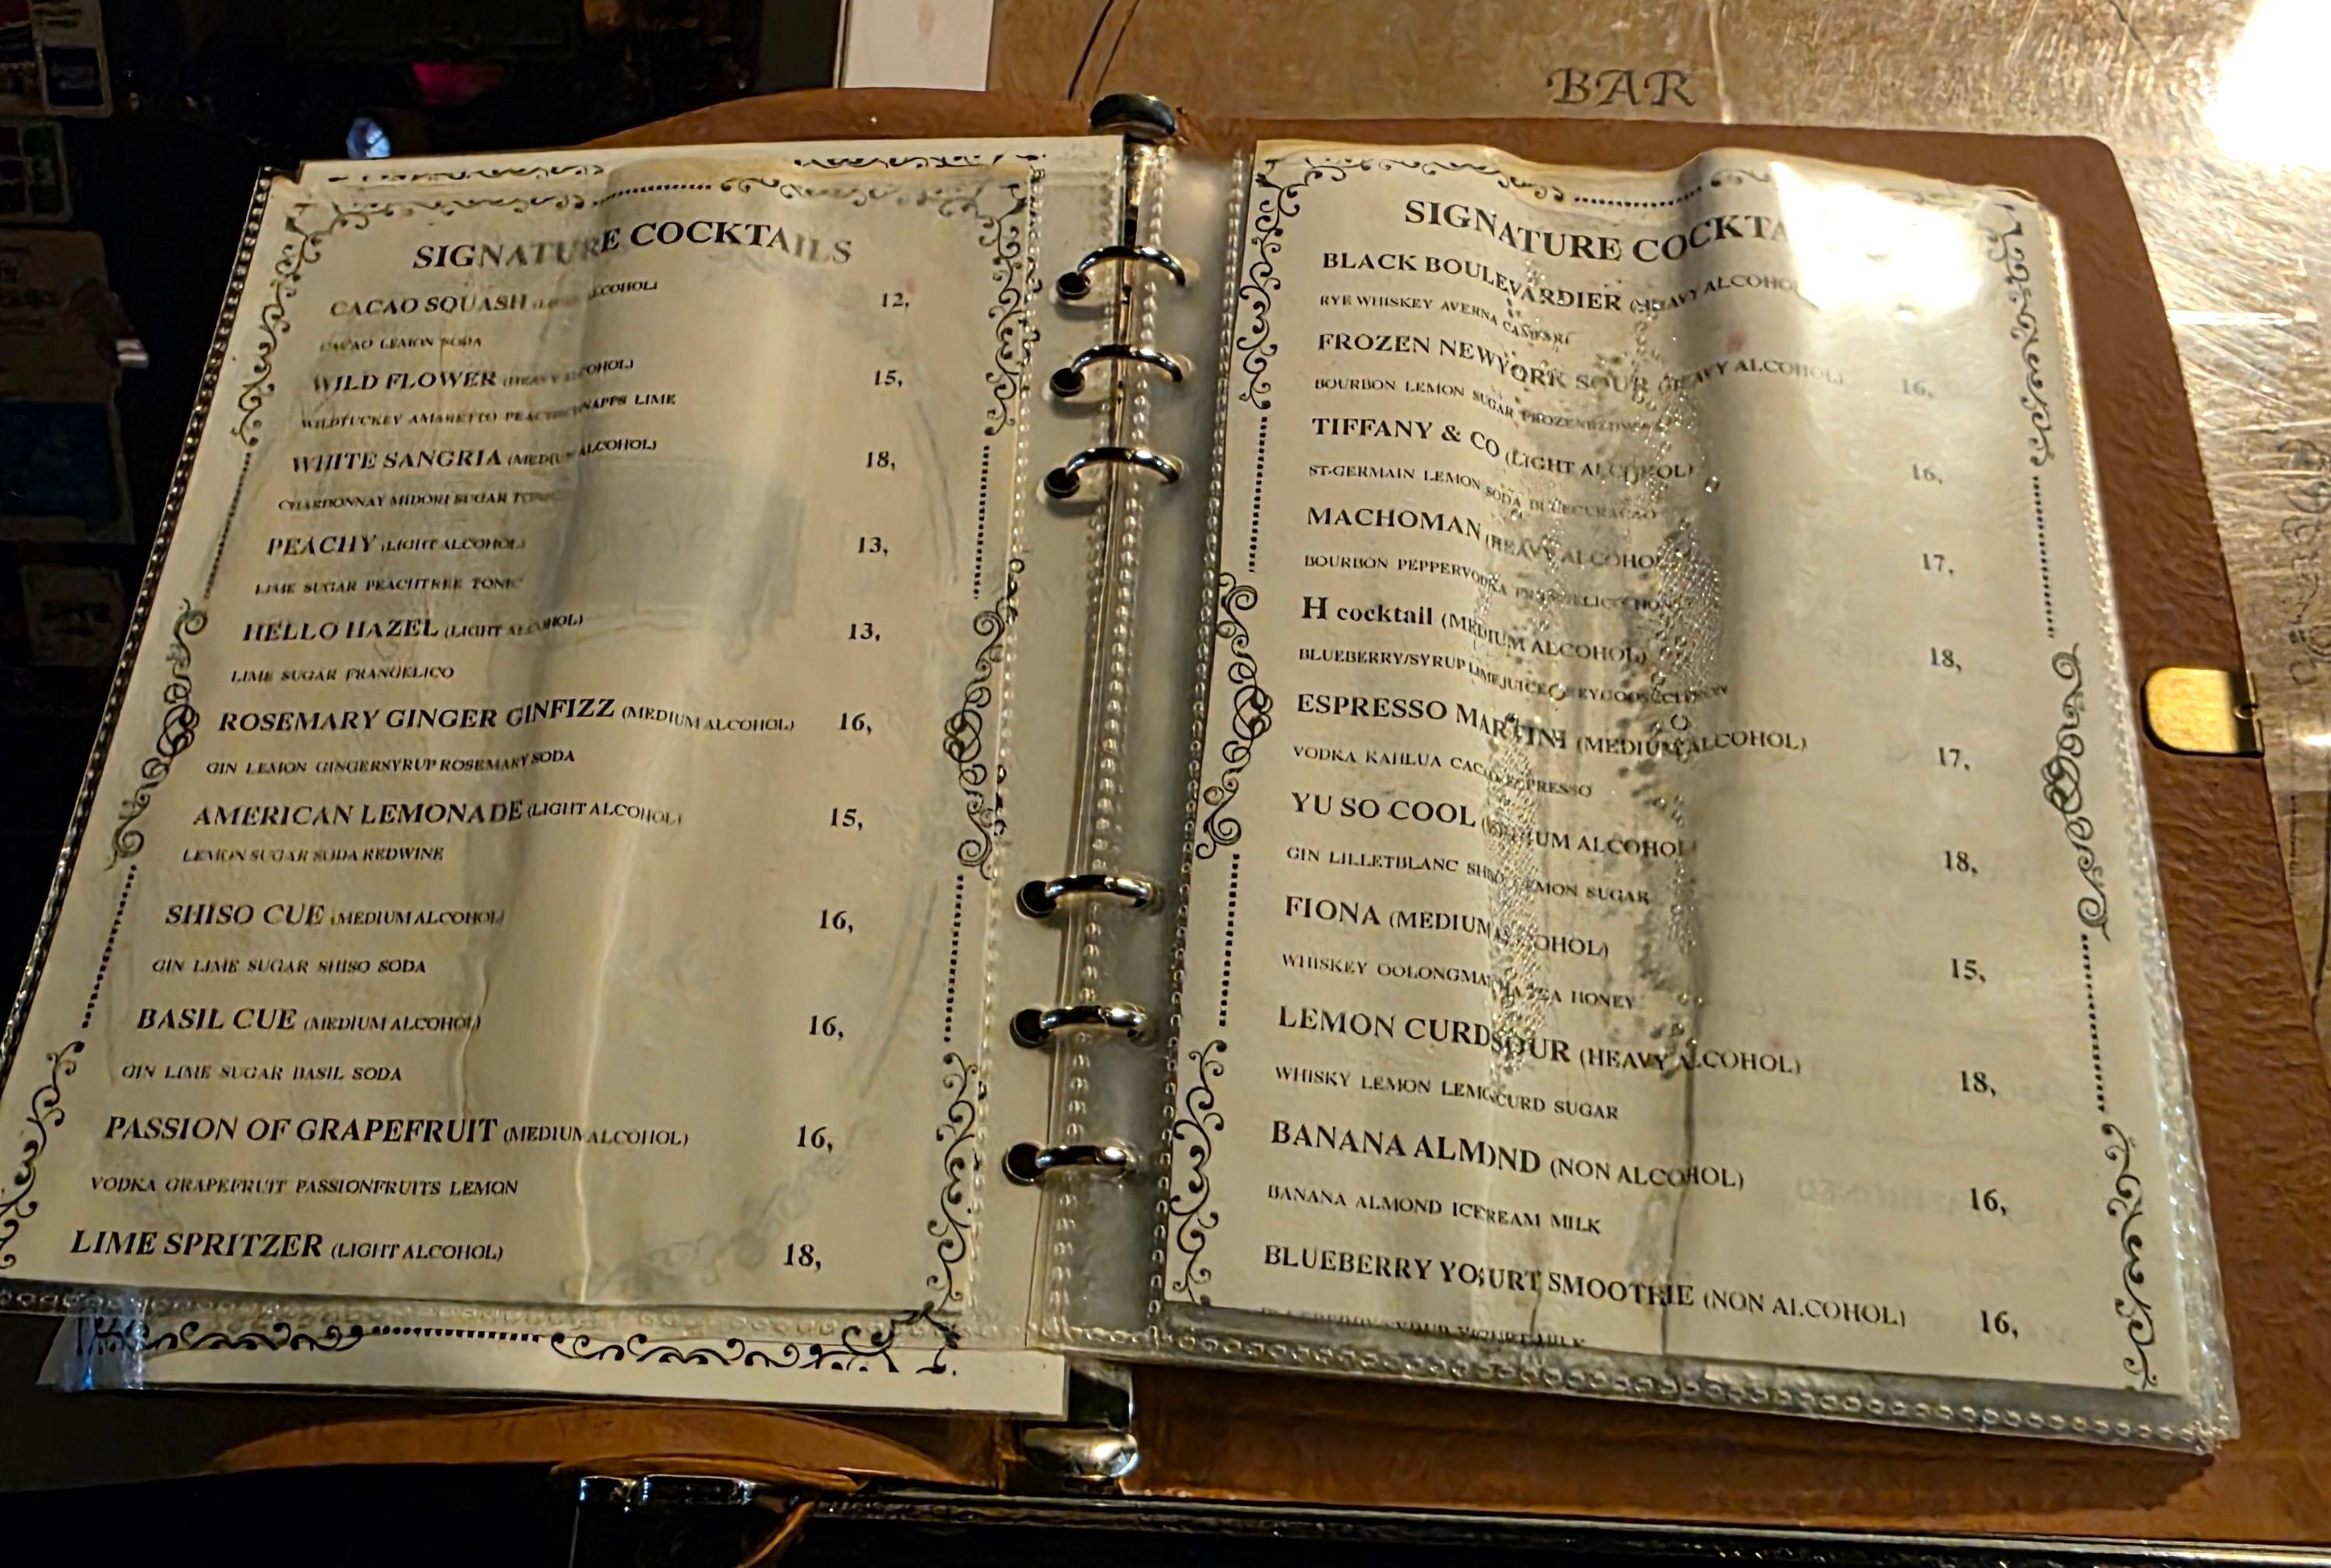 BAR
SIGNATURE COCKTAILS
CACAO SQUASH ALCOHOL)
12,
CACAO LEMON SODA
WILD FLOWER (HEAVY ALCOHOL)
15,
WILDTUCKEY AMARETTO LIME
WHITE SANGRIA (MEDIUM ALCOHOL)
18,
CHARDONNAY MIDORI SUGAR TONIC
PEACHY (LIGHT ALCOHOL)
13,
LIME SUGAR PEACHTREE TONIC
HELLO HAZEL (LIGHT ALCOHOL)
13,
LIME SUGAR FRANGELICO
ROSEMARY GINGER GINFIZZ (MEDIUM ALCOHOL) 16,
GIN LEMON GINGERSYRUP ROSEMARY SODA
AMERICAN LEMONADE (LIGHT ALCOHOL)
15,
LEMON SUGAR SODA REDWINE
SHISO CUE (MEDIUM ALCOHOL)
16,
GIN LIME SUGAR SHISO SODA
BASIL CUE (MEDIUM ALCOHOL)
16,
GIN LIME SUGAR BASIL SODA
PASSION OF GRAPEFRUIT (MEDIUM ALCOHOL)
16,
VODKA GRAPEFRUIT PASSIONFRUITS LEMON
LIME SPRITZER (LIGHT ALCOHOL)
18,
SIGNATURE COCKTA
BLACK BOULEVARDIER (HEAVY ALCOHOL
RYE WHISKEY AVERNA CAMPARI
FROZEN NEWYORK SOUR (HEAVY ALCOHOL)
16,
BOURBON LEMON SUGAR
TIFFANY & CO (LIGHT ALCOHOL)
16,
ST-GERMAIN LEMON SODA BLUECURACAO
MACHOMAN (HEAVY ALCOHOL)
17,
BOURBON PEPPERVODKA
H cocktail (MEDIUM ALCOHOL)
18,
BLUEBERRY/SYRUP LIMEJUICE
ESPRESSO MARTINI (MEDIUM ALCOHOL)
17,
VODKA KAHLUA CACAO ESPRESSO
YU SO COOL (MEDIUM ALCOHOL)
18,
GIN LILLETBLANC SHISO LEMON SUGAR
FIONA (MEDIUM ALCOHOL)
15,
WHISKEY TEA HONEY
LEMON CURDSOUR (HEAVY ALCOHOL)
18,
WHISKY LEMON LEMONCURD SUGAR
BANANA ALMOND (NON ALCOHOL)
16,
BANANA ALMOND ICECREAM MILK
BLUEBERRY YOGURT SMOOTHIE (NON ALCOHOL)
16,